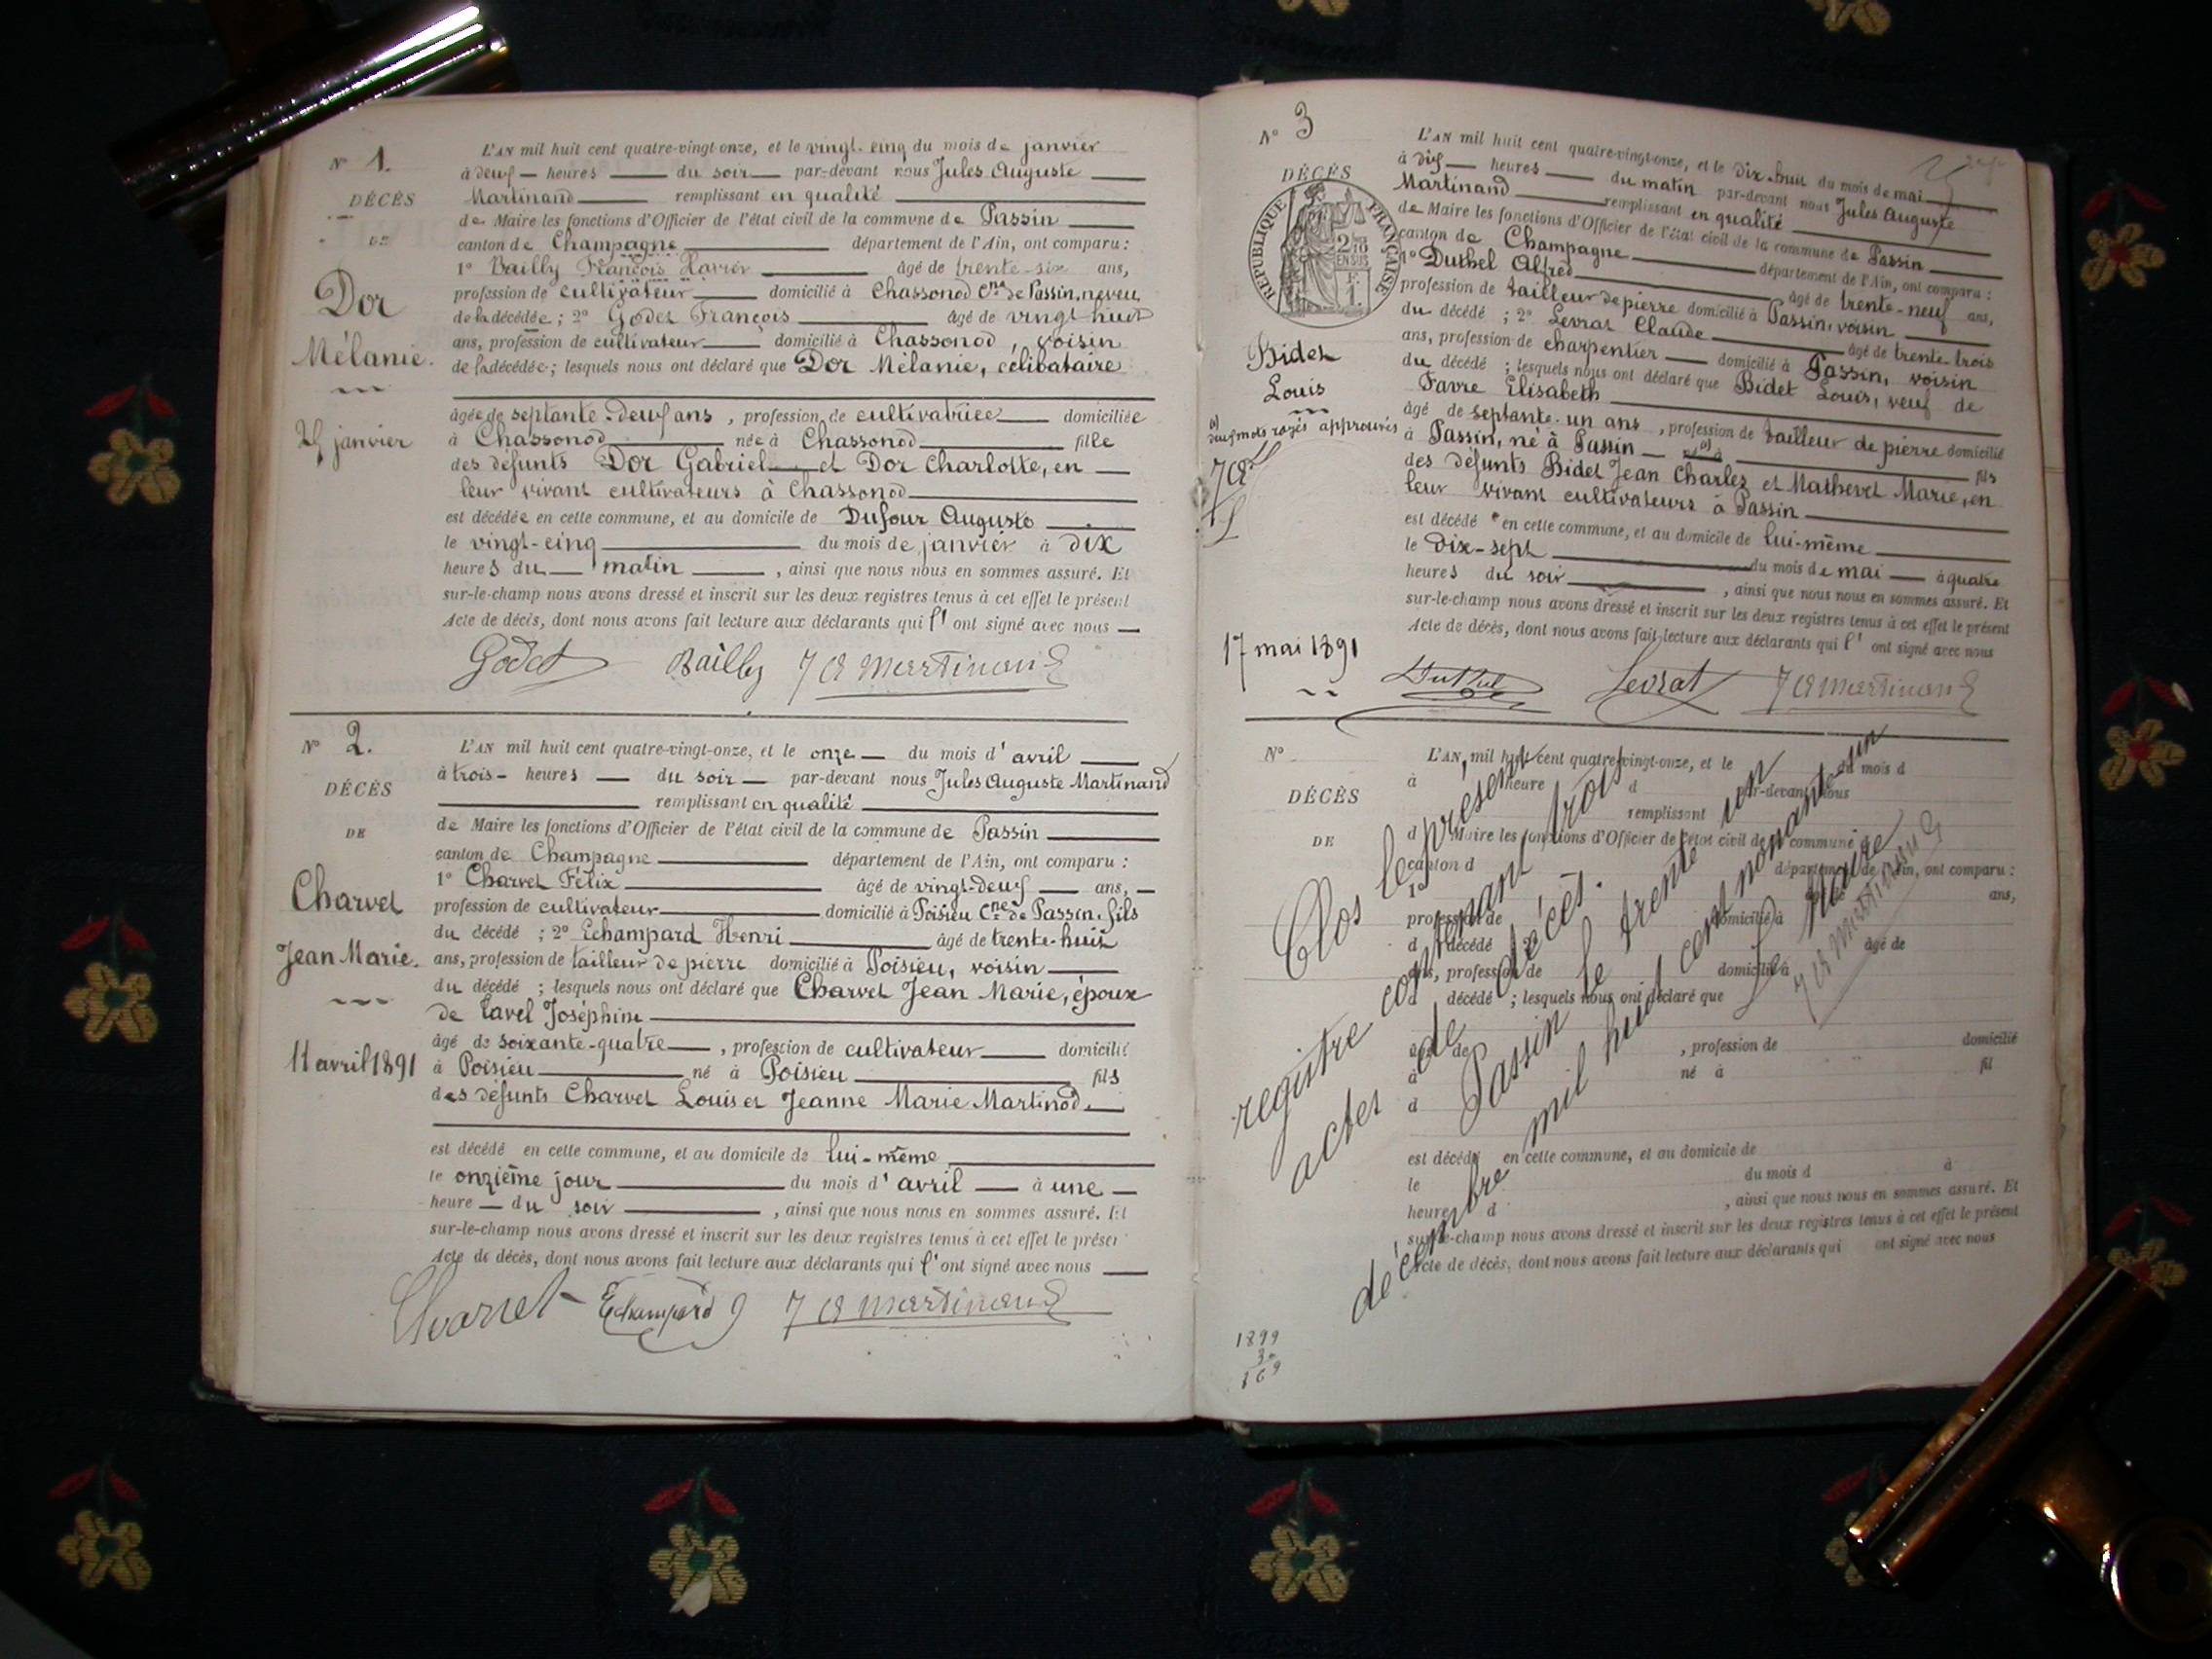 N° 1.
DÉCÈS
DE
Dor
Mélanie.
25 janvier
L'AN mil huit cent quatre-vingt-onze, et le vingt-cinq du mois de janvier
à deux heures du soir par-devant nous Jules Auguste
Martinand remplissant en qualité
de Maire les fonctions d'Officier de l'état civil de la commune de Passin
canton de Champagne département de l'Ain, ont comparu :
1° Bailly François Xavier âgé de trente-six ans,
profession de cultivateur domicilié à Chassonod Cne de Passin, neveu
de la décédée ; 2° Godet François âgé de vingt huit
ans, profession de cultivateur domicilié à Chassonod, voisin
de la décédée ; lesquels nous ont déclaré que Dor Mélanie, célibataire
âgée de septante-deux ans, profession de cultivatrice domiciliée
à Chassonod née à Chassonod fille
des défunts Dor Gabriel et Dor Charlotte, en
leur vivant cultivateurs à Chassonod
est décédée en cette commune, et au domicile de Dufour Auguste
le vingt-cinq du mois de janvier à dix
heures du matin, ainsi que nous nous en sommes assuré. Et
sur-le-champ nous avons dressé et inscrit sur les deux registres tenus à cet effet le présent
Acte de décès, dont nous avons fait lecture aux déclarants qui l'ont signé avec nous
Godet Bailly J A Martinand
N° 2.
DÉCÈS
DE
Charvet
Jean Marie.
11 avril 1891
L'AN mil huit cent quatre-vingt-onze, et le onze du mois d'avril
à trois heures du soir par-devant nous Jules Auguste Martinand
remplissant en qualité
de Maire les fonctions d'Officier de l'état civil de la commune de Passin
canton de Champagne département de l'Ain, ont comparu :
1° Charvet Félix âgé de vingt-deux ans,
profession de cultivateur domicilié à Poisieu Cne de Passin, fils
du décédé ; 2° Echampard Henri âgé de trente-huit
ans, profession de tailleur de pierre domicilié à Poisieu, voisin
du décédé ; lesquels nous ont déclaré que Charvet Jean Marie, époux
de Tavel Joséphine
âgé de soixante-quatre, profession de cultivateur domicilié
à Poisieu né à Poisieu fils
des défunts Charvet Louis et Jeanne Marie Martinod.
est décédé en cette commune, et au domicile de lui-même
le onzième jour du mois d'avril à une
heure du soir, ainsi que nous nous en sommes assuré. Et
sur-le-champ nous avons dressé et inscrit sur les deux registres tenus à cet effet le présent
Acte de décès, dont nous avons fait lecture aux déclarants qui l'ont signé avec nous
Charvet Echampard J A Martinand
N° 3
DÉCÈS
RÉPUBLIQUE FRANÇAISE
Bidet
Louis
deux mots rayés approuvés
17 mai 1891
L'AN mil huit cent quatre-vingt-onze, et le dix-huit du mois de mai
à dix heures du matin par-devant nous Jules Auguste
Martinand remplissant en qualité
de Maire les fonctions d'Officier de l'état civil de la commune de Passin
canton de Champagne département de l'Ain, ont comparu :
1° Duthel Alfred âgé de trente-neuf ans,
profession de tailleur de pierre domicilié à Passin, voisin
du décédé ; 2° Levrat Claude âgé de trente-trois
ans, profession de charpentier domicilié à Passin, voisin
du décédé ; lesquels nous ont déclaré que Bidet Louis, veuf de
Favre Elisabeth
âgé de septante-un ans, profession de tailleur de pierre domicilié
à Passin, né à Passin fils
des défunts Bidet Jean Charles et Mathevet Marie, en
leur vivant cultivateurs à Passin
est décédé en cette commune, et au domicile de lui-même
le dix-sept du mois de mai à quatre
heures du soir, ainsi que nous nous en sommes assuré. Et
sur-le-champ nous avons dressé et inscrit sur les deux registres tenus à cet effet le présent
Acte de décès, dont nous avons fait lecture aux déclarants qui l'ont signé avec nous
Duthel Levrat J A Martinand
N°
DÉCÈS
DE
L'AN mil huit cent quatre-vingt-onze, et le du mois d
à heure d par-devant nous
remplissant
d Maire les fonctions d'Officier de l'état civil de la commune
canton d département de l'Ain, ont comparu :
1° ans,
profession de domicilié à
d décédé âgé de
ans, profession de domicilié à
d décédé ; lesquels nous ont déclaré que
âgé de , profession de domicilié
à né à fil
d
est décédé en cette commune, et au domicile de
le du mois d à
heure d , ainsi que nous nous en sommes assuré. Et
sur-le-champ nous avons dressé et inscrit sur les deux registres tenus à cet effet le présent
Acte de décès, dont nous avons fait lecture aux déclarants qui ont signé avec nous
Clos le présent
registre contenant trois
actes de décès.
Passin le trente un
décembre mil huit cent nonante-un
Le Maire
J A Martinand
1899
30
169